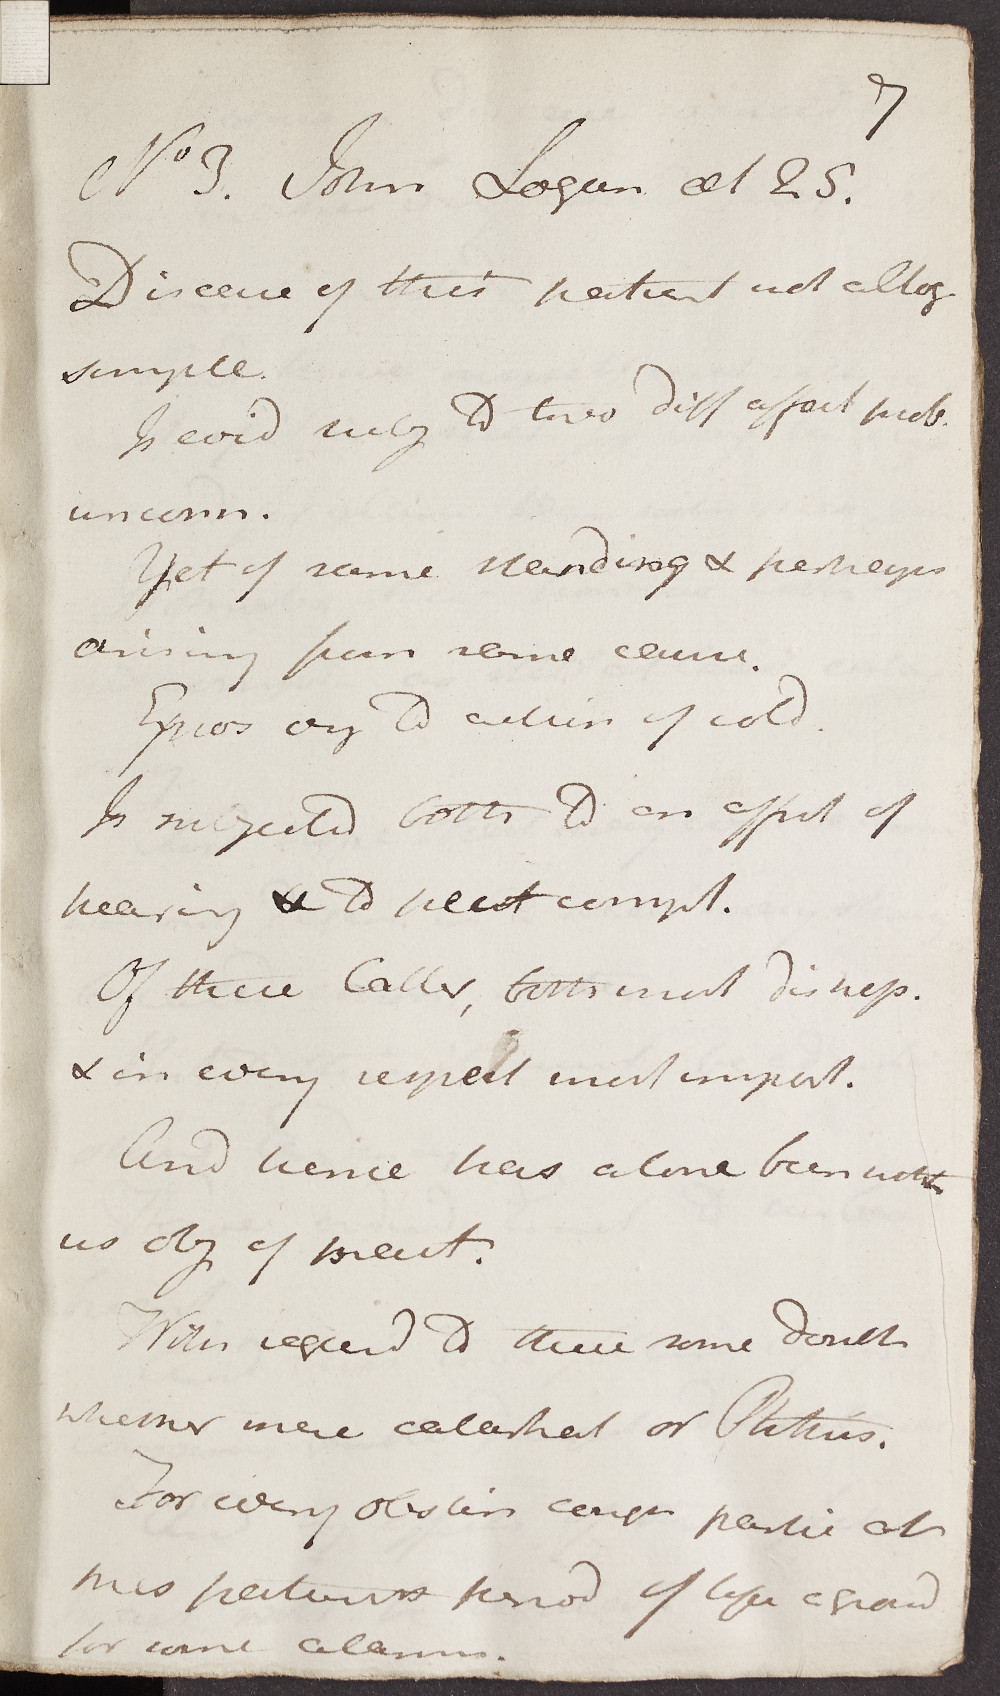 7
No 3. John Logan æt 25.
Disease of this patient not altog.
simple.
Is evid subj to two diff affect prob.
unconn.
Yet of same standing & perhaps
arising from same cause.
Expos to action of cold.
Is subjected both to an affect of
hearing & to pect compl.
Of these latter, both most distress.
& in every respect most import.
And hence has alone been with
us obj of treat.
With regard to these some doubt
whether mere catarrhal or Phthisis.
For every obstin cough partic at
this patients period of life a ground
for some alarm.